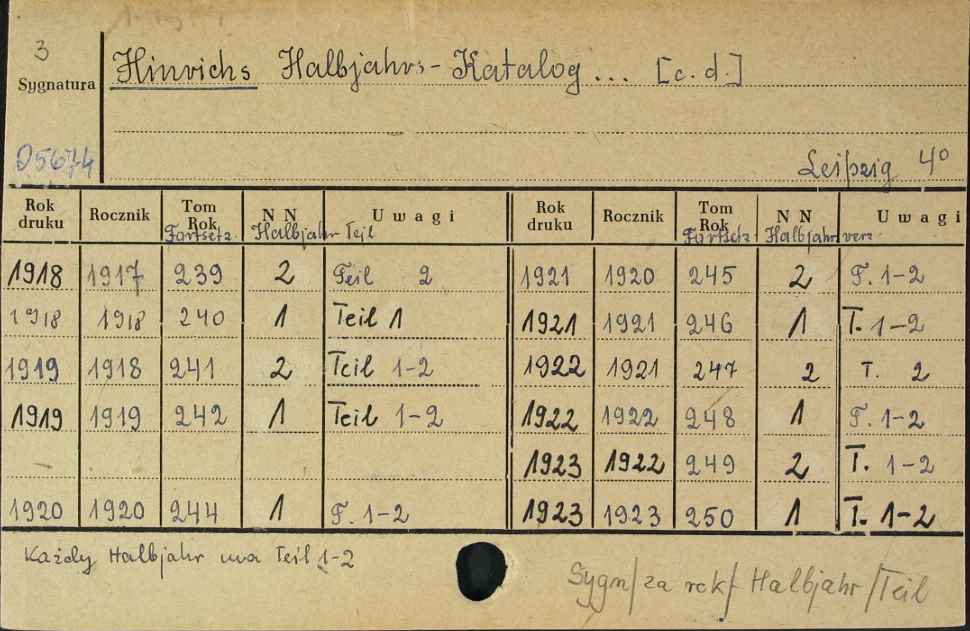 3
Sygnatura
05674
Hinrichs Halbjahrs-Katalog ... [c.d.]
Leipzig 4°
Rok druku Rocznik Tom Rok N N Uwagi Rok druku Rocznik Tom Rok N N Uwagi
Fortsetz. Halbjahr Teil Fortsetz. Halbjahr verz.
1918 1917 239 2 Teil 2 1921 1920 245 2 T. 1-2
1918 1918 240 1 Teil 1 1921 1921 246 1 T. 1-2
1919 1918 241 2 Teil 1-2 1922 1921 247 2 T. 2
1919 1919 242 1 Teil 1-2 1922 1922 248 1 T. 1-2
1923 1922 249 2 T. 1-2
1920 1920 244 1 T. 1-2 1923 1923 250 1 T. 1-2
Każdy Halbjahr ma Teil 1-2
Sygn/za rok/ Halbjahr/Teil